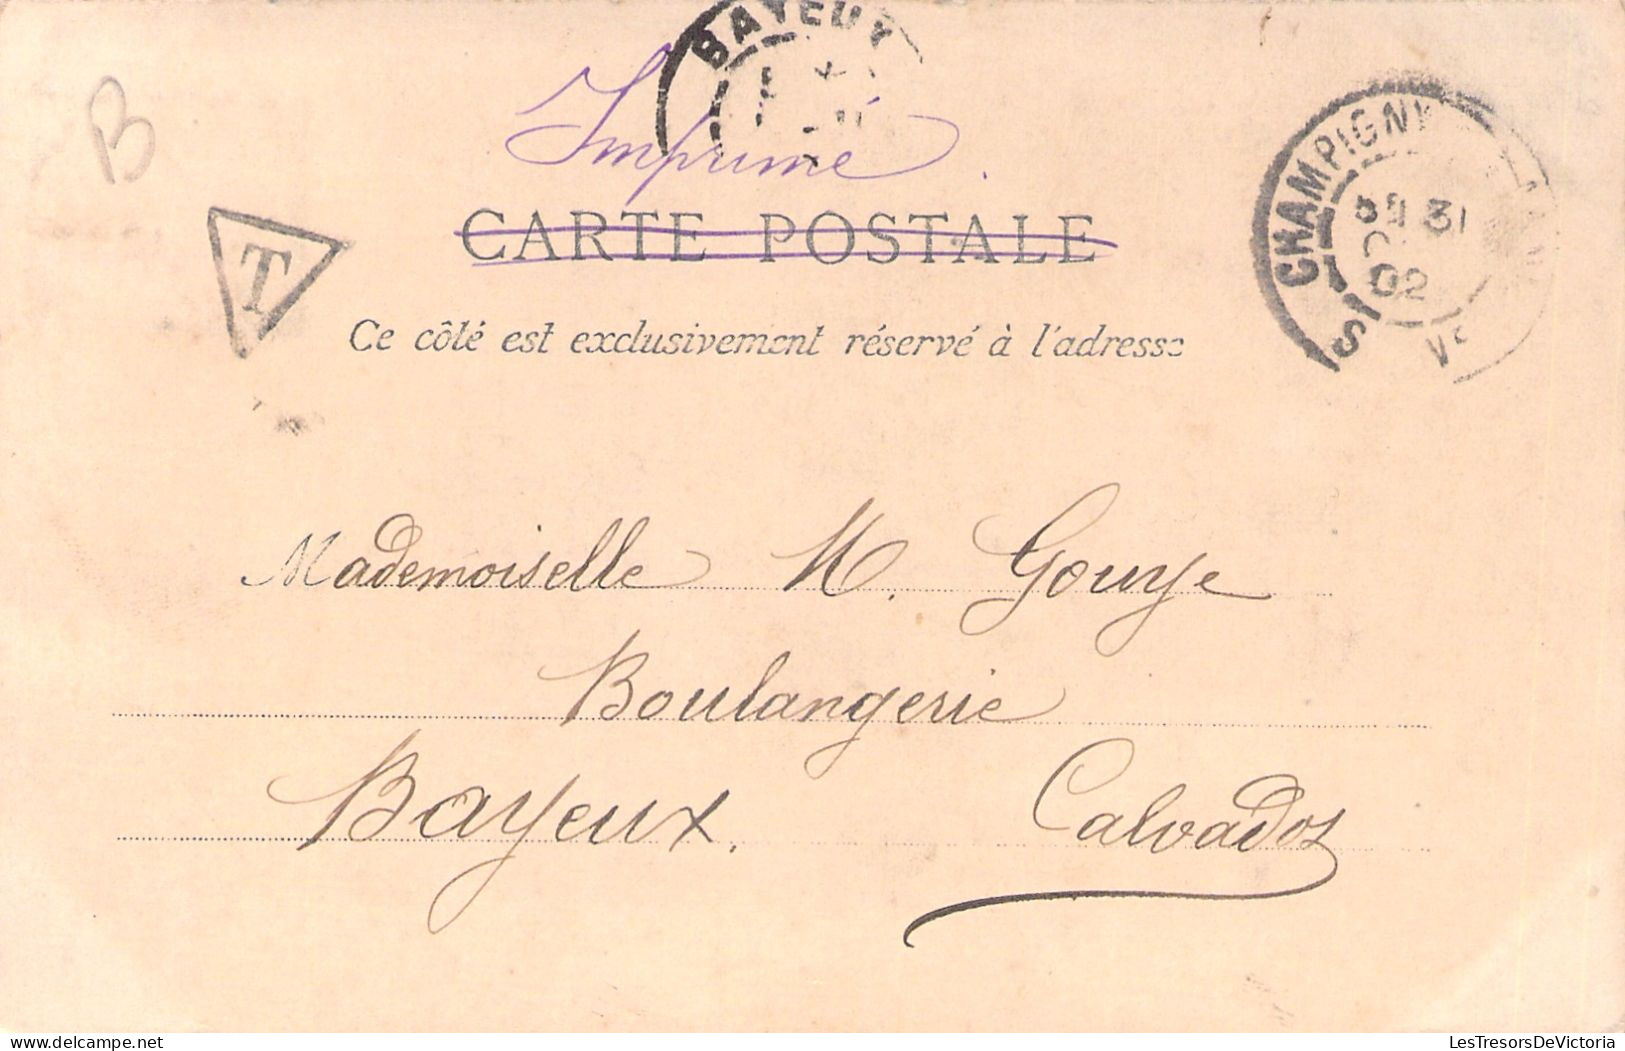 BAYEUX
B
Imprimé.
CHAMPIGNY
31
02
T
CARTE POSTALE
Ce côté est exclusivement réservé à l'adresse
Mademoiselle M. Gouye
Boulangerie
Bayeux. Calvados
LesTresorsDeVictoria